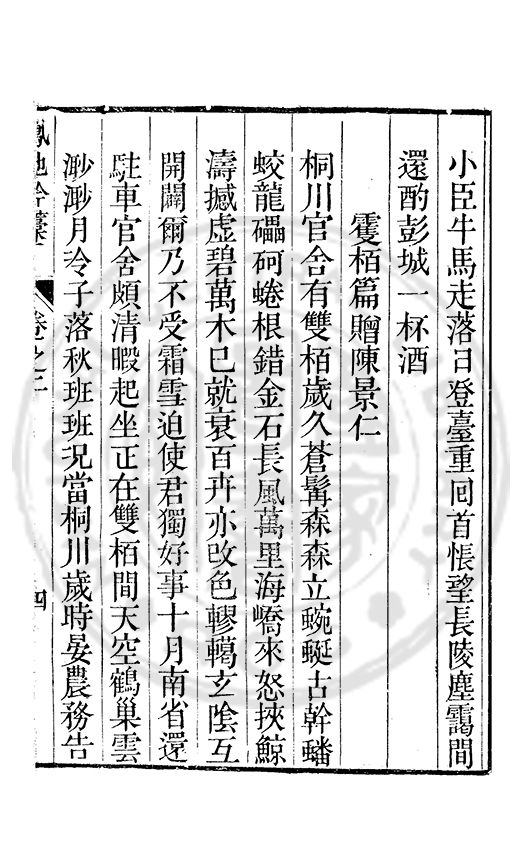 小臣牛馬走落日登臺重囘首悵望長陵塵靄間
還酌彭城一杯酒
雙栢篇贈陳景仁
桐川官舍有雙栢歲久蒼髯森森立蜿蜒古幹蟠
蛟龍礧砢蜷根錯金石長風萬里海嶠來怒挾鯨
濤撼虛碧萬木巳就衰百卉亦改色轇轕玄陰互
開闔爾乃不受霜雪迫使君獨好事十月南省還
駐車官舍頗清暇起坐正在雙栢間天空鶴巢雲
渺渺月冷子落秋班班況當桐川歲時晏農務告
鳳池吟藁 卷之二 四